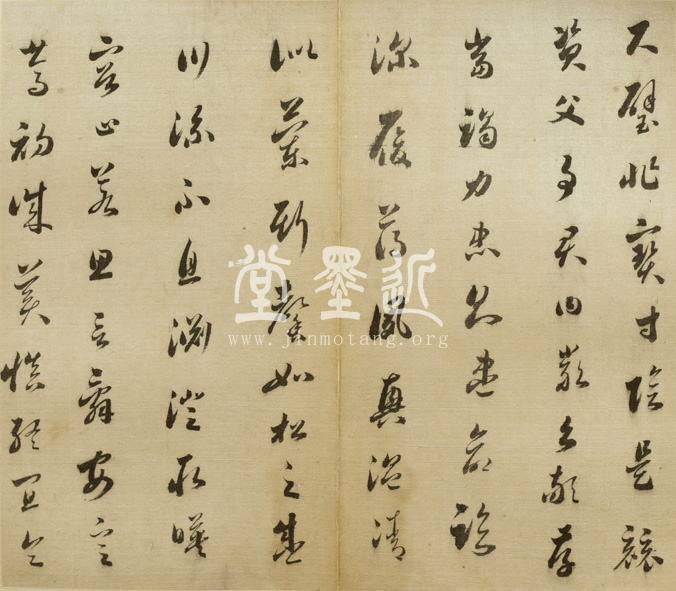 尺璧非寶寸陰是競
資父事君曰嚴與敬孝
當竭力忠則盡命臨
深履薄夙興溫凊
似蘭斯馨如松之盛
川流不息淵澄取映
容止若思言辭安定
篤初誠美慎終宜令
近墨堂
www.jinmotang.org